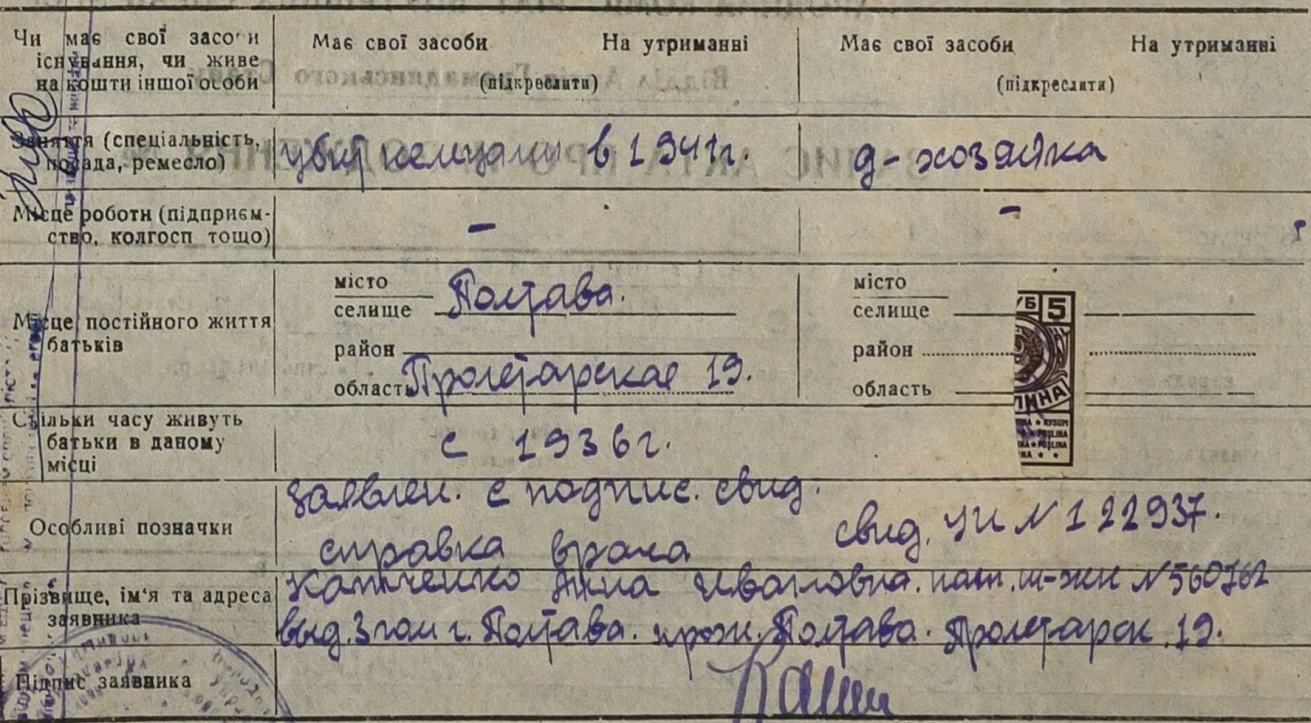 Чи має свої засоби
існування, чи живе
на кошти іншої особи
Має свої засоби На утриманні
(підкреслити)
Має свої засоби На утриманні
(підкреслити)
Заняття (спеціальність,
посада, ремесло)
убит немцами в 1941г.
д-хозяйка
Місце роботи (підприєм-
ство, колгосп тощо)
-
-
Місце постійного життя
батьків
місто
селище Полтава.
район
область Пролетарская 19.
місто
селище
район
область
5
Скільки часу живуть
батьки в даному
місці
с 1936г.
Особливі позначки
заявлен. с подпис. свид.
справка врача
свид. УИ N 122937.
Прізвище, ім'я та адреса
заявника
Анна Ивановна. пасп. N 560762
выд. 3 гом г. Полтава. прож. Полтава. Пролетарск. 19.
Підпис заявника